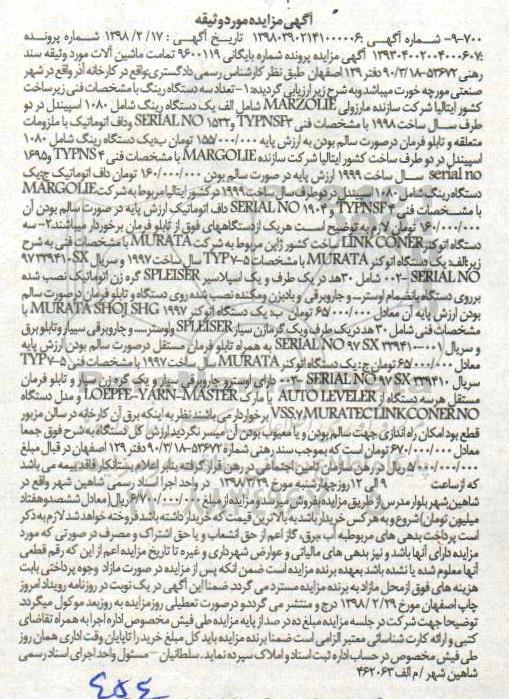 آگهی مزایده مورد وثیقه
۷۰۰-۹- شماره آگهی :۱۳۹۸۰۳۹۰۲۱۴۱۰۰۰۰۰۶ تاریخ آگهی : ۱۷/ ۲/ ۱۳۹۸ شماره پرونده
:۱۳۹۳۰۴۰۰۲۰۰۴۰۰۰۶۰۷ آگهی مزایده پرونده شماره بایگانی ۹۶۰۰۱۱۹ تمامت ماشین آلات مورد وثیقه سند
رهنی ۵۳۶۷۲-۹۰/۳/۱۸ دفتر ۱۳۹ اصفهان طبق نظر کارشناس رسمی دادگستری واقع در کارخانه آذر واقع در شهر
صنعتی مورچه خورت میباشد و به شرح زیر ارزیابی گردیده: ۱- تعداد سه دستگاه رینگ با مشخصات فنی زیر ساخت
کشور ایتالیا شرکت سازنده مارزولی MARZOLIE شامل الف یک دستگاه رینگ شامل ۱۰۸۰ اسپیندل در دو
طرف سال ساخت ۱۹۹۸ با مشخصات فنی TYPNSF۲ و ۱۵۳۲ SERIAL NO و داف اتوماتیک با ملزومات
متعلقه و تابلو فرمان در صورت سالم بودن به ارزش پایه ۱۵۵/۰۰۰/۰۰۰ تومان ب-یک دستگاه رینگ شامل ۱۰۸۰
اسپیندل در دو طرف ساخت کشور ایتالیا شرکت سازنده MARGOLIE با مشخصات فنی TYPNS ۴ و ۱۶۹۵
serial no سال ساخت ۱۹۹۹ ارزش پایه در صورت سالم بودن ۱۶۰/۰۰۰/۰۰۰ تومان داف اتوماتیک ج-یک
دستگاه رینگ شامل ۱۰۸۰ اسپیندل در دو طرف سال ساخت ۱۹۹۹ در کشور ایتالیا مربوط به شرکت MARGOLIE
با مشخصات فنی TYPNSF۴ و ۱۹۰۴ SERIAL NO داف اتوماتیک ارزش پایه در صورت سالم بودن آن
۱۶۰/۰۰۰/۰۰۰ تومان لازم به توضیح است هر یک از دستگاههای فوق از تابلو فرمان برخوردار میباشند.۲- سه
دستگاه اتوکنر LINK CONER ساخت کشور ژاپن مربوط به شرکت MURATA با مشخصات فنی به شرح
زیر:الف: یک دستگاه اتوکنر MURATA با مشخصات TYP۷-۵ سال ساخت ۱۹۹۷ و سریال ۹۷۳۳۹۴۱۰SX
SERIAL NO-۰۰۲ شامل ۳۰ هد در یک طرف و یک اسپلایسر SPLEISER گره زن اتوماتیک نصب شده
بر روی دستگاه بانضمام اوستر... و جاروبرقی و بادبزن و مکنده نصب شده روی دستگاه و تابلو فرمان در صورت سالم
بودن ارزش پایه آن معادل ۶۵/۰۰۰/۰۰۰ تومان ب: یک دستگاه اتوکنر MURATA SHOJ SHG ۱۹۹۷ با
مشخصات فنی شامل ۳۰ هد در یک طرف و یک گره زن سیار SPLEISER و اوستر... و جاروبرقی سیار و تابلو برق
و سریال ۰۰۱-۳۳۹۴۱۰ SERIAL NO ۹۷ SX به همراه تابلو فرمان مستقل در صورت سالم بودن ارزش پایه
معادل ۶۵/۰۰۰/۰۰۰ تومان ج: یک دستگاه اتوکنر MURATA سال ساخت ۱۹۹۷ با مشخصات فنی TYP۷-۵
سریال ۳۳۹۴۱۰ SERIAL NO ۹۷ SX-۰۰۲ دارای اوستر و جاروبرقی سیار و یک گره زن سیار و تابلو فرمان
مستقل هر سه دستگاه از AUTO LEVELER با مارک LOEPFE-YARN-MASTER و مدل دستگاه
VSS۷ MURATEC LINK CONER NO برخوردار می باشند نظر به اینکه برق آن کارخانه در سالن مزبور
قطع بود امکان راه اندازی جهت سالم بودن و یا معیوب بودن آن میسر نگردید ارزش کل دستگاه به شرح فوق جمعا
معادل ۶۷۰/۰۰۰/۰۰۰ تومان است که بموجب سند رهنی شماره ۵۳۶۷۲-۹۰/۳/۱۸ دفتر ۱۳۹ اصفهان در قبال مبلغ
۵/۰۰۰/۰۰۰/۰۰۰ ریال در رهن سازمان تامین اجتماعی در رهن قرار گرفته بنابر اعلام بستانکار فاقد بیمه می باشد
که از ساعت ۹ الی ۱۲ روز چهارشنبه مورخ ۱۳۹۸/۳/۲۹ در واحد اجرا اسناد رسمی شاهین شهر واقع در
شاهین شهر بلوار مدرس از طریق مزایده بفروش میرسد و مزایده از مبلغ ۶/۷۰۰/۰۰۰/۰۰۰ ریال(معادل ششصد و هفتاد
میلیون تومان)شروع و به هر کس خریدار باشد به بالاترین قیمت که خریدار داشته باشد فروخته خواهد شد لازم به ذکر
است پرداخت بدهی های مربوطه آب،برق، گاز اعم از حق انشعاب و یا حق اشتراک و مصرف در صورتی که مورد
مزایده دارای آنها باشد و نیز بدهی های مالیاتی و عوارض شهرداری و غیره تا تاریخ مزایده اعم از این که رقم قطعی
آنها معلوم شده یا نشده باشد بعهده برنده مزایده است ضمن آنکه پس از مزایده در صورت مازاد وجوه پرداختی بابت
هزینه های فوق از محل مازاد به برنده مزایده مسترد می گردد ضمنا این آگهی در یک نوبت در روزنامه رویداد امروز
چاپ اصفهان مورخ ۱۳۹۸/۲/۲۹ درج و منتشر می گردد و در صورت تعطیلی روز مزایده به روز بعد موکول میگردد.
توضیحا جهت شرکت در جلسه مزایده مبلغ ده درصد از پایه مزایده طی فیش مخصوص اداره اجرا به همراه تقاضای
کتبی و ارائه کارت شناسائی معتبر الزامی است ضمنا برنده مزایده باید کل مبلغ خرید را تا پایان وقت اداری همان روز
طی فیش مخصوص در حساب اداره ثبت اسناد و املاک سپرده نماید. سلطانیان – مسئول واحد اجرای اسناد رسمی
شاهین شهر /م الف ۴۶۲۰۶۳